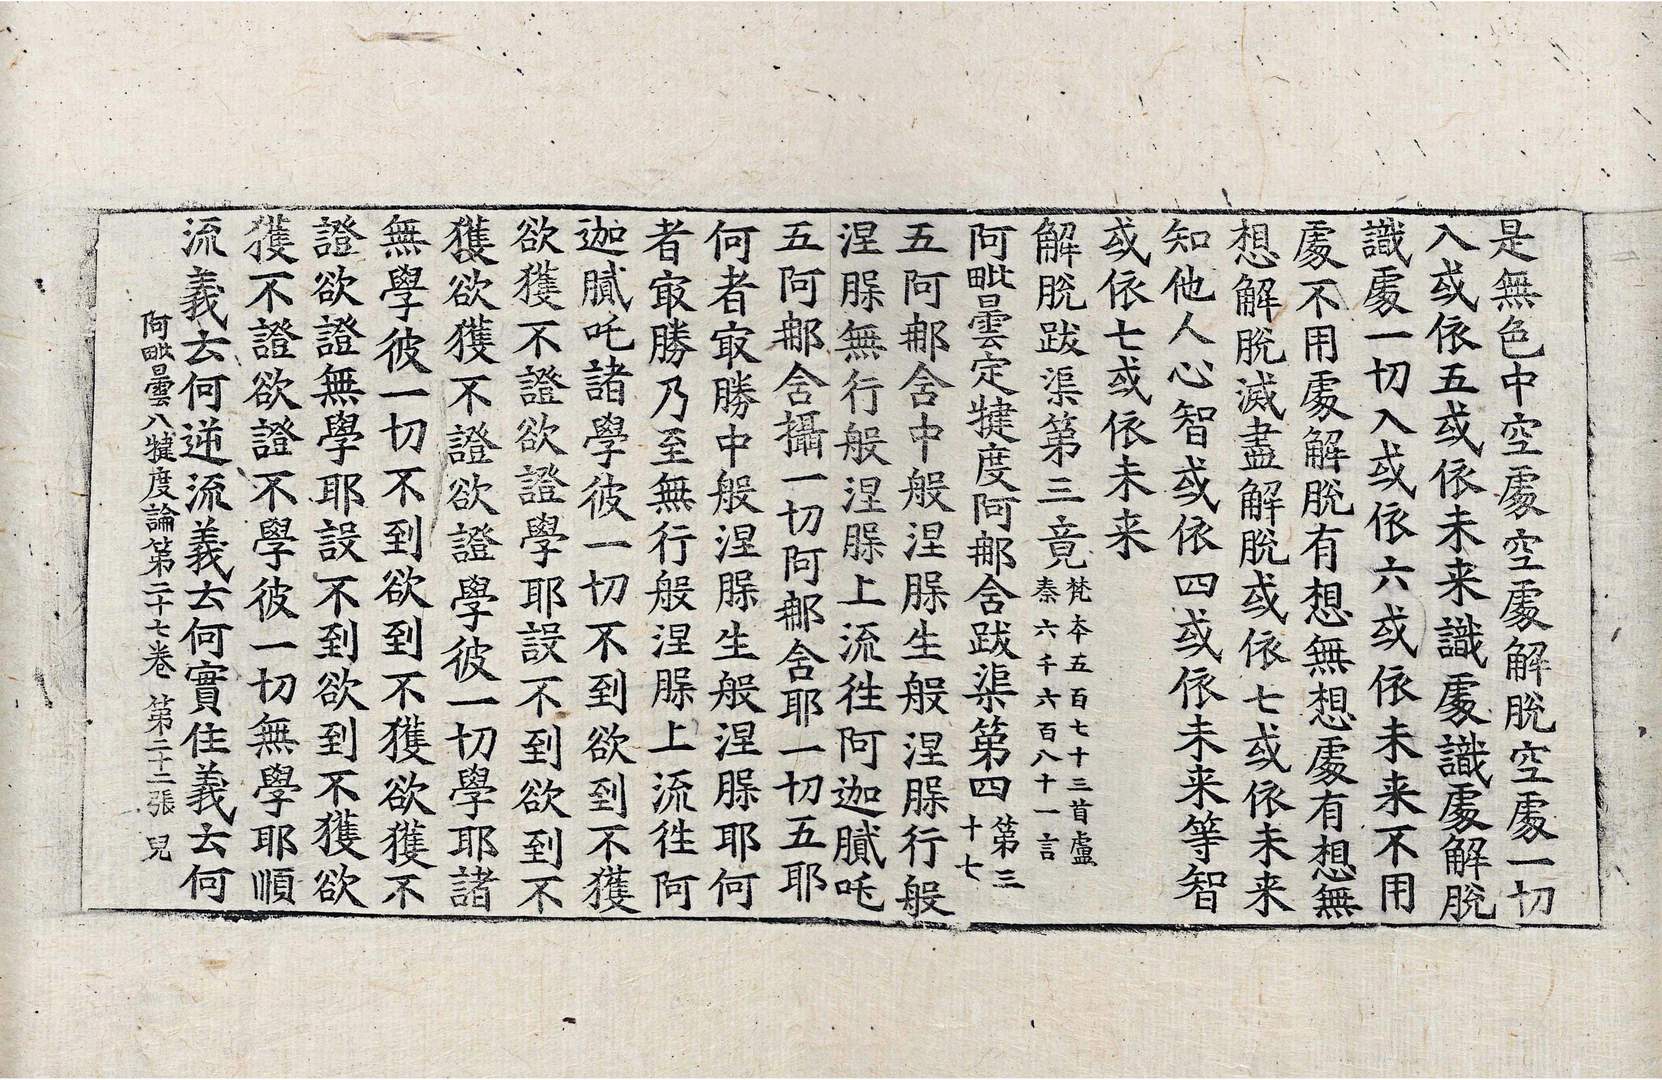 是無色中空處空處解脫空處一切
入或依五或依未来識處識處解脫
識處一切入或依六或依未来不用
處不用處解脫有想無想處有想無
想解脫滅盡解脫或依七或依未来
知他人心智或依四或依未来等智
或依七或依未来
解脫跋渠第三竟梵本五百七十三首盧
秦六千六百八十一言
阿毗曇定揵度阿那含跋渠第四第三
十七
五阿那含中般涅槃生般涅槃行般
涅槃無行般涅槃上流往阿迦膩吒
五阿那含攝一切阿那含耶一切五耶
何者㝡勝中般涅槃生般涅槃耶何
者㝡勝乃至無行般涅槃上流往阿
迦膩吒諸學彼一切不到欲到不獲
欲獲不證欲證學耶設不到欲到不
獲欲獲不證欲證學彼一切學耶諸
無學彼一切不到欲到不獲欲獲不
證欲證無學耶設不到欲到不獲欲
獲不證欲證不學彼一切無學耶順
流義云何逆流義云何實住義云何
阿毗曇八犍度論第二十七卷 第二十二張 兒